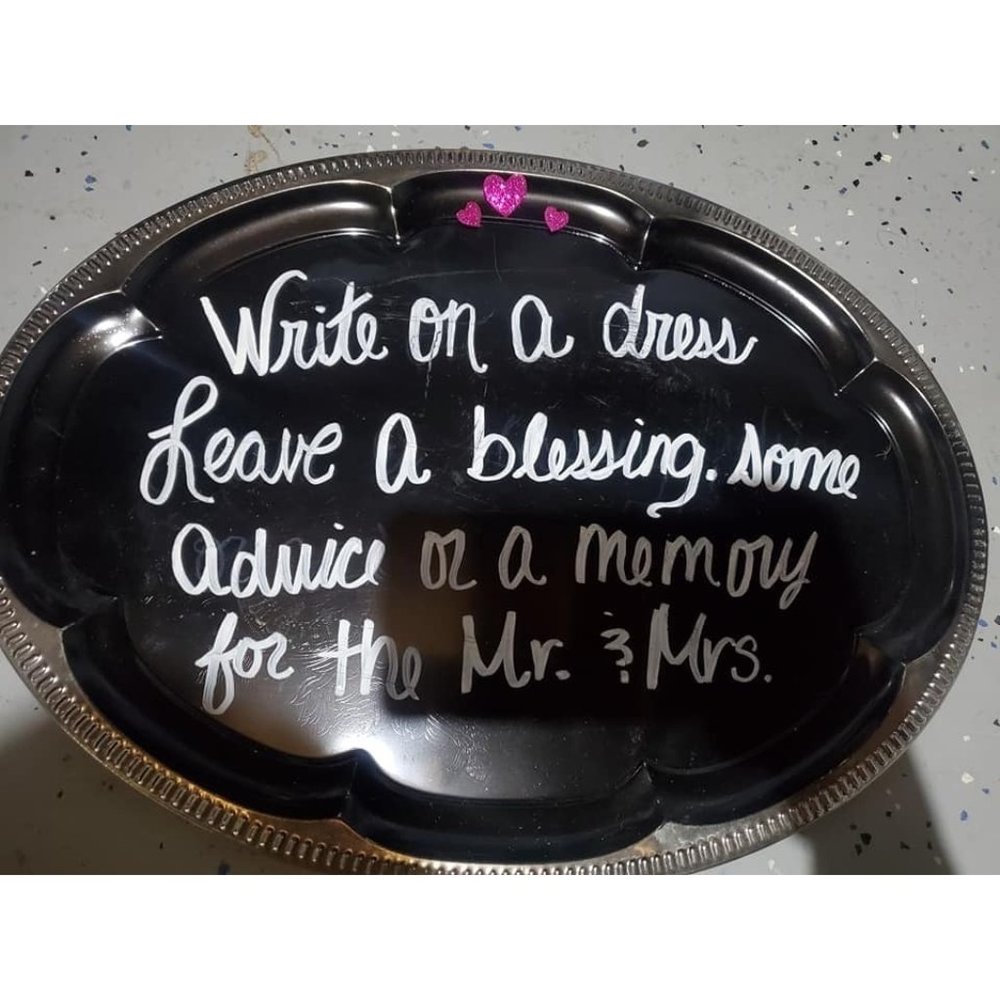 Write on a dress
Leave a blessing. some
advice or a memory
for the Mr. & Mrs.